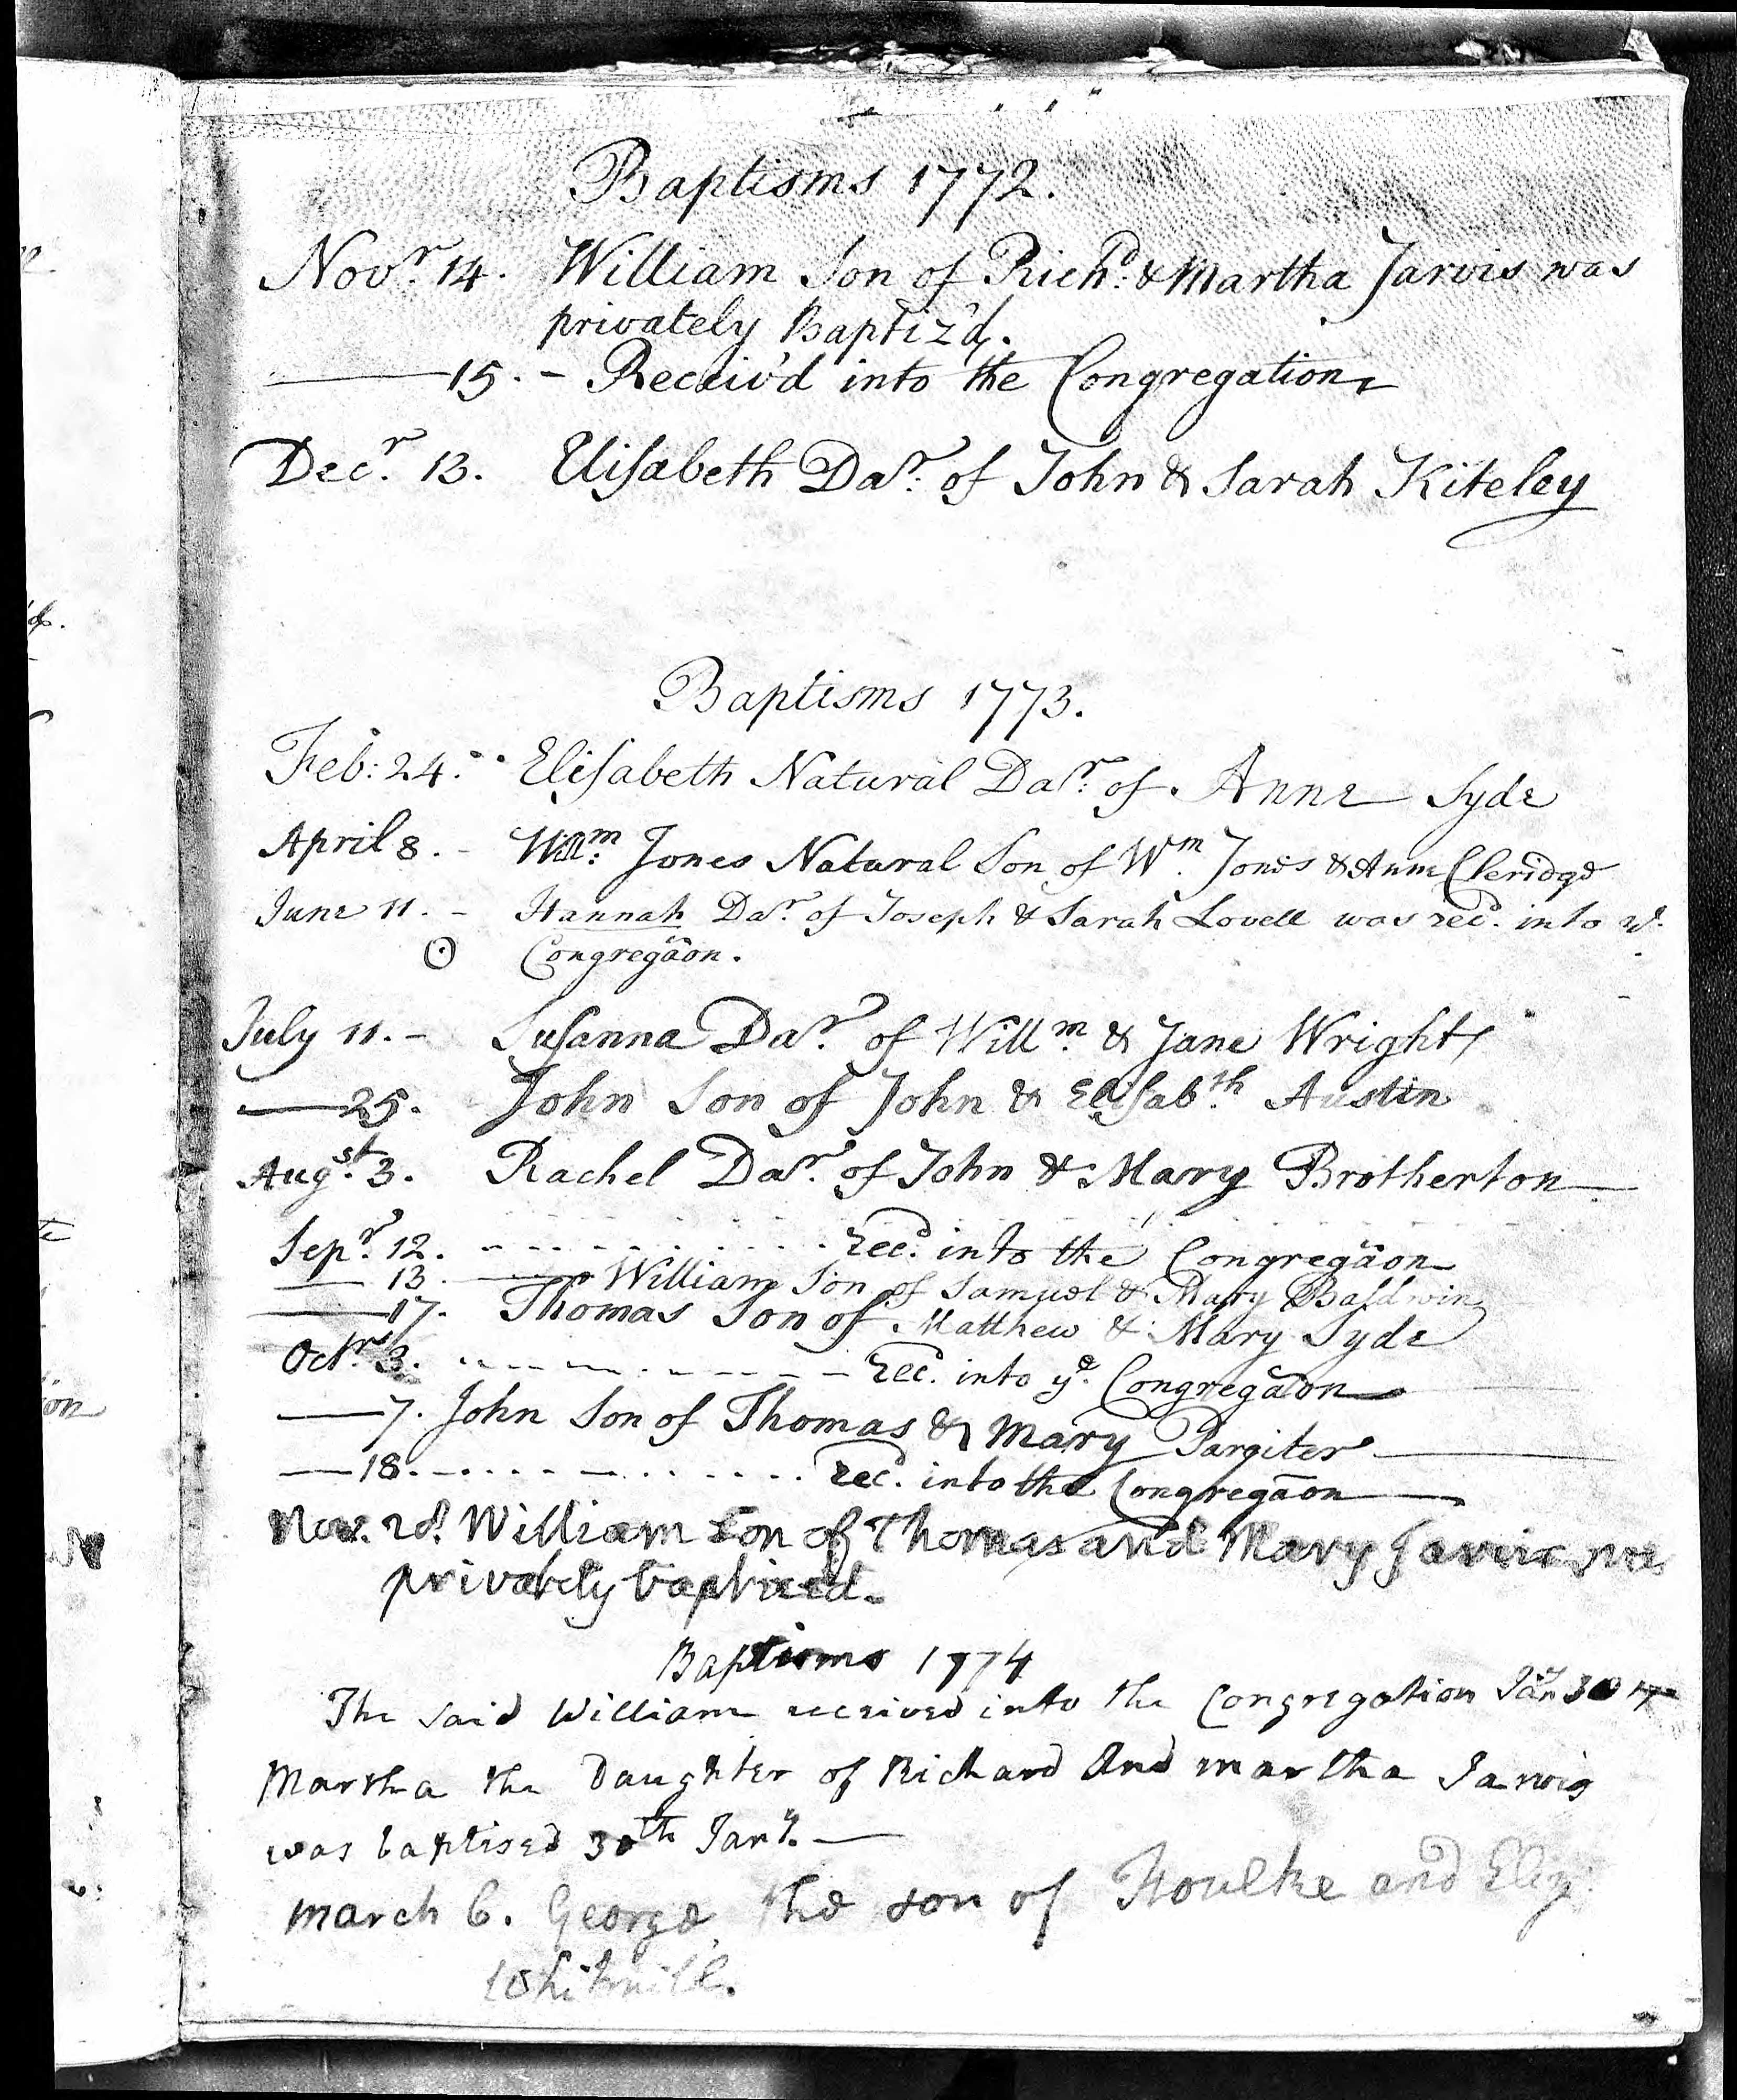 Baptisms 1772.
Novr. 14. William Son of Richd. & Martha Jarvis was
privately Baptiz'd.
15. - Receiv'd into the Congregation
Decr. 13. Elisabeth Dar. of John & Sarah Kiteley
Baptisms 1773.
Feb: 24. Elisabeth Natural Dar. of Anne Syde
April 8. - Willm. Jones Natural Son of Wm. Jones & Anne Cleridge
June 11. - Hannah Dar. of Joseph & Sarah Lovell was recd. into ye.
Congregãon.
July 11. - Susanna Dar. of Willm. & Jane Wright
25. John Son of John & Elisabth. Austin
Augst. 3. Rachel Dar. of John & Mary Brotherton
Sepr. 12. recd. into the Congregãon
13. William Son of Samuel & Mary Baldwin
17. Thomas Son of Matthew & Mary Syde
Octr. 3. recd. into ye. Congregãon
7. John Son of Thomas & Mary Pargiter
18. recd. into the Congregãon
Nov. 28. William Son of Thomas and Mary Jarvis was
privately baptized.
Baptisms 1774
The said William received into the Congregation Jany 30
Martha the Daughter of Richard And martha Jarvis
was baptised 30th Jany.
march 6. George the son of Foulke and Eliz:
Whitmill.